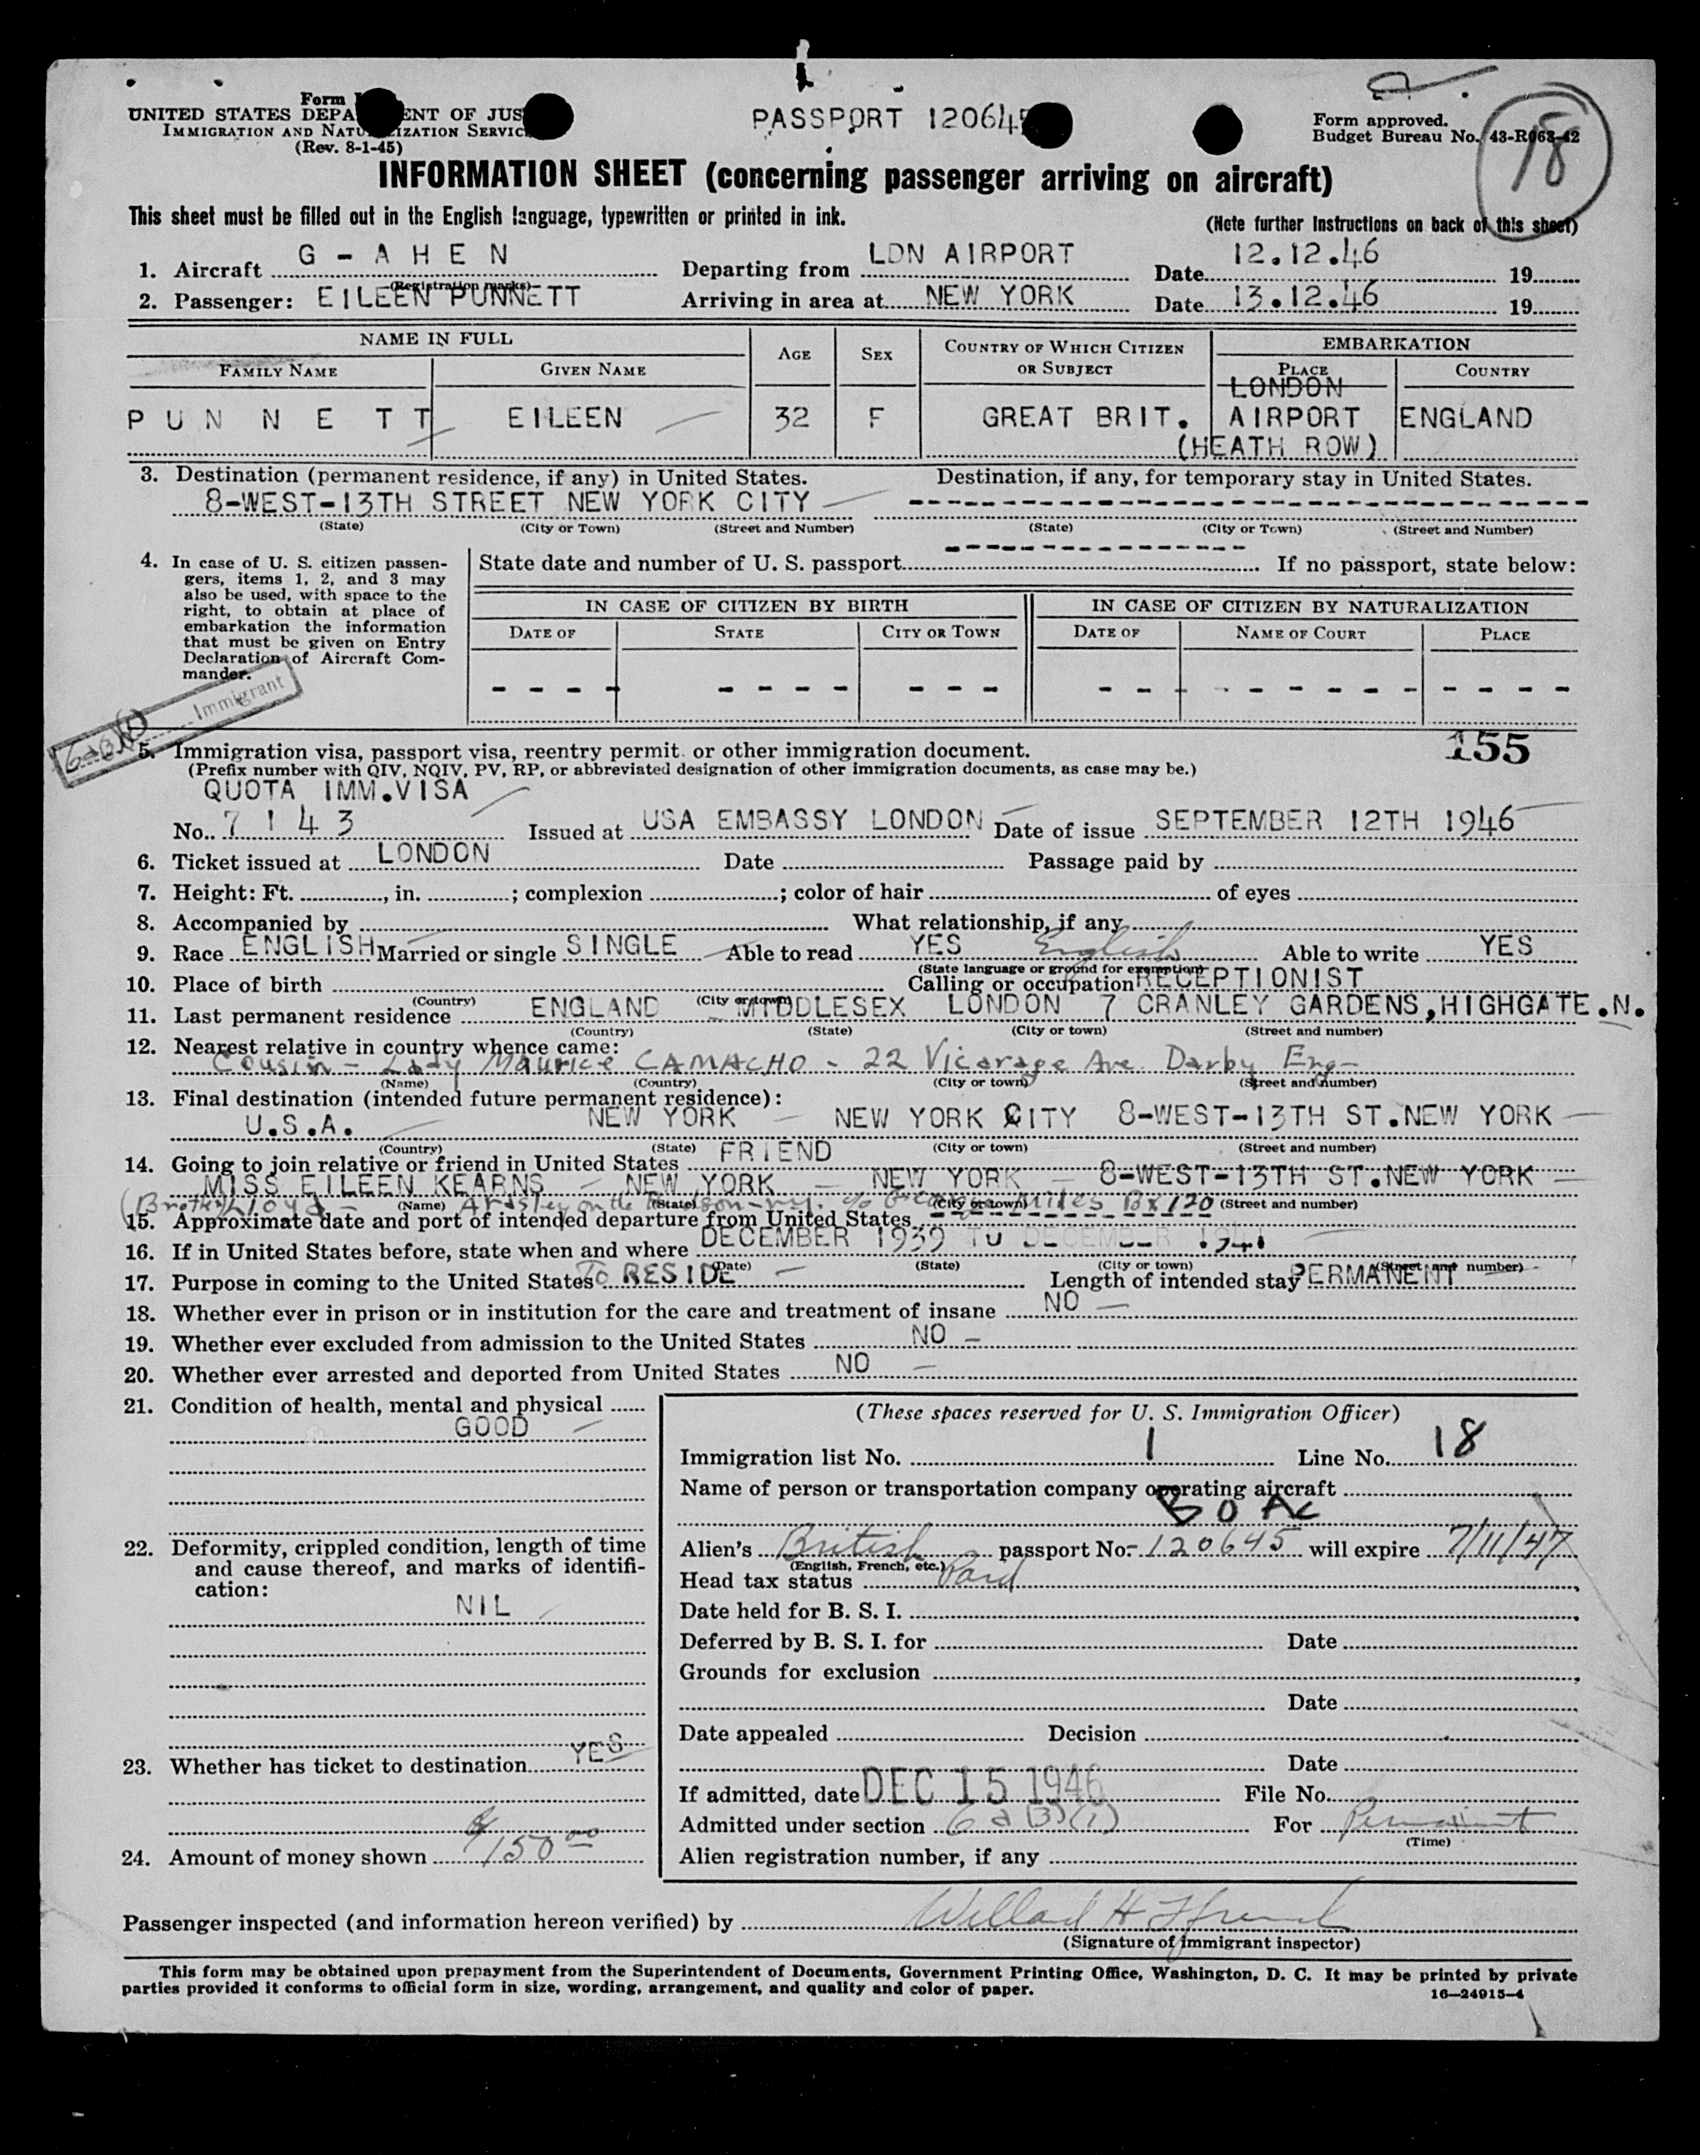 PASSPORT 120645
Form
UNITED STATES DEPA ENT OF JUS
IMMIGRATION AND NATU IZATION SERVIC
(Rev. 8-1-45)
Form approved.
Budget Bureau No. 43-R063-42
18
INFORMATION SHEET (concerning passenger arriving on aircraft)
This sheet must be filled out in the English language, typewritten or printed in ink.
(Note further instructions on back of this sheet)
1. Aircraft G - A H E N Departing from LDN AIRPORT Date 12.12.46 19
(Registration marks)
2. Passenger: EILEEN PUNNETT Arriving in area at NEW YORK Date 13.12.46 19
NAME IN FULL AGE SEX COUNTRY OF WHICH CITIZEN OR SUBJECT EMBARKATION
FAMILY NAME GIVEN NAME PLACE COUNTRY
LONDON
PUNNETT EILEEN 32 F GREAT BRIT. AIRPORT ENGLAND
(HEATH ROW)
3. Destination (permanent residence, if any) in United States. Destination, if any, for temporary stay in United States.
8-WEST-13TH STREET NEW YORK CITY
(State) (City or Town) (Street and Number) (State) (City or Town) (Street and Number)
4. In case of U. S. citizen passen-
gers, items 1, 2, and 3 may
also be used, with space to the
right, to obtain at place of
embarkation the information
that must be given on Entry
Declaration of Aircraft Com-
mander.
State date and number of U. S. passport If no passport, state below:
IN CASE OF CITIZEN BY BIRTH IN CASE OF CITIZEN BY NATURALIZATION
DATE OF STATE CITY OR TOWN DATE OF NAME OF COURT PLACE
Immigrant
155
5. Immigration visa, passport visa, reentry permit or other immigration document.
(Prefix number with QIV, NQIV, PV, RP, or abbreviated designation of other immigration documents, as case may be.)
QUOTA IMM.VISA
No. 7143 Issued at USA EMBASSY LONDON Date of issue SEPTEMBER 12TH 1946
6. Ticket issued at LONDON Date Passage paid by
7. Height: Ft. , in. ; complexion ; color of hair of eyes
8. Accompanied by What relationship, if any
9. Race ENGLISH Married or single SINGLE Able to read YES English Able to write YES
(State language or ground for exemption)
10. Place of birth Calling or occupation RECEPTIONIST
(Country) (City or town)
11. Last permanent residence ENGLAND MIDDLESEX LONDON 7 CRANLEY GARDENS,HIGHGATE.N.
(Country) (State) (City or town) (Street and number)
12. Nearest relative in country whence came:
Cousin - Lady Maurice CAMACHO - 22 Vicarage Ave. Darby Eng-
(Name) (Country) (City or town) (Street and number)
13. Final destination (intended future permanent residence):
U.S.A. NEW YORK NEW YORK CITY 8-WEST-13TH ST.NEW YORK
(Country) (State) (City or town) (Street and number)
14. Going to join relative or friend in United States FRIEND
MISS EILEEN KEARNS NEW YORK NEW YORK 8-WEST-13TH ST.NEW YORK
(Brother) Lloyd - on the Hudson - N.Y. c/o George Miles Bx 120
(Name) (State) (City or town) (Street and number)
15. Approximate date and port of intended departure from United States
16. If in United States before, state when and where DECEMBER 1939 TO DECEMBER 1941
(Date) (State) (City or town) (Street and number)
17. Purpose in coming to the United States TO RESIDE Length of intended stay PERMANENT
18. Whether ever in prison or in institution for the care and treatment of insane NO
19. Whether ever excluded from admission to the United States NO
20. Whether ever arrested and deported from United States NO
21. Condition of health, mental and physical
GOOD
22. Deformity, crippled condition, length of time
and cause thereof, and marks of identifi-
cation:
NIL
23. Whether has ticket to destination YES
24. Amount of money shown $150 00
(These spaces reserved for U. S. Immigration Officer)
Immigration list No. 1 Line No. 18
Name of person or transportation company operating aircraft
B O A C
Alien's British passport No. 120645 will expire 7/11/47
(English, French, etc.)
Head tax status Paid
Date held for B. S. I.
Deferred by B. S. I. for Date
Grounds for exclusion
Date
Date appealed Decision
Date
If admitted, date DEC 15 1946 File No.
Admitted under section 6a(3)(1) For Permanent
(Time)
Alien registration number, if any
Passenger inspected (and information hereon verified) by Willard H
(Signature of immigrant inspector)
This form may be obtained upon prepayment from the Superintendent of Documents, Government Printing Office, Washington, D. C. It may be printed by private
parties provided it conforms to official form in size, wording, arrangement, and quality and color of paper.
16—24915-4